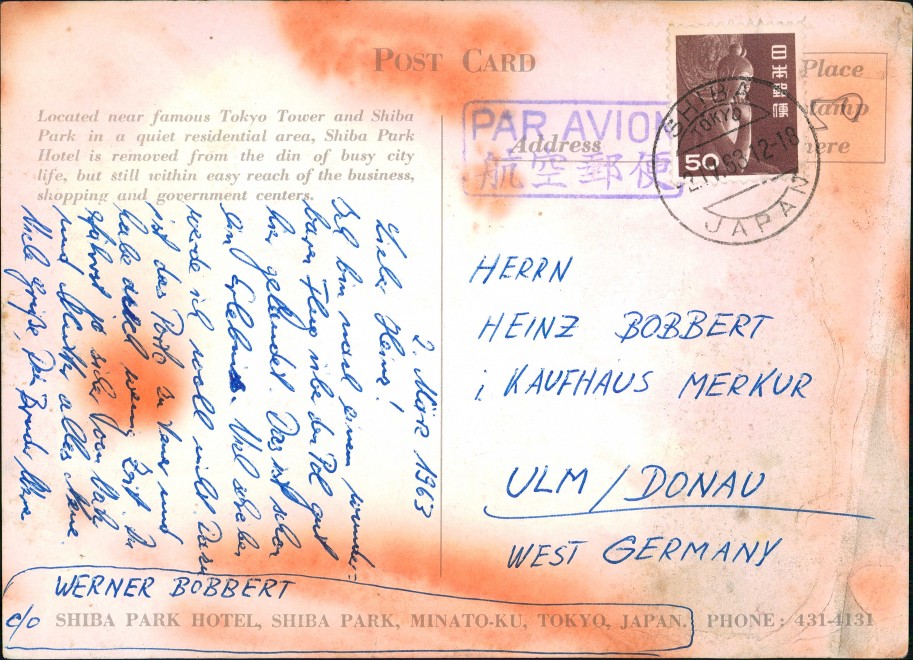 POST CARD
Located near famous Tokyo Tower and Shiba
Park in a quiet residential area, Shiba Park
Hotel is removed from the din of busy city
life, but still within easy reach of the business,
shopping and government centers.
PAR AVION
航空郵便
Address
Place
Stamp
here
日本郵便
150
SHIBA
TOKYO
12-18
JAPAN
2. März 1963
Lieber Heinz!
Ich bin nach einem wunder-
baren Flug über den Pol gut
hier gelandet. Das ist schon
ein Erlebnis. Viel schreiben
werde ich wohl nicht. Dazu
ist das Porto zu teuer und
habe auch wenig Zeit. Du
erfährst ja sicher von Vati
und Mutti alles Neue.
Viele Grüße, Dein Bruder Werner
HERRN
HEINZ BOBBERT
i. KAUFHAUS MERKUR
ULM / DONAU
WEST GERMANY
WERNER BOBBERT
c/o SHIBA PARK HOTEL, SHIBA PARK, MINATO-KU, TOKYO, JAPAN. PHONE: 431-4131